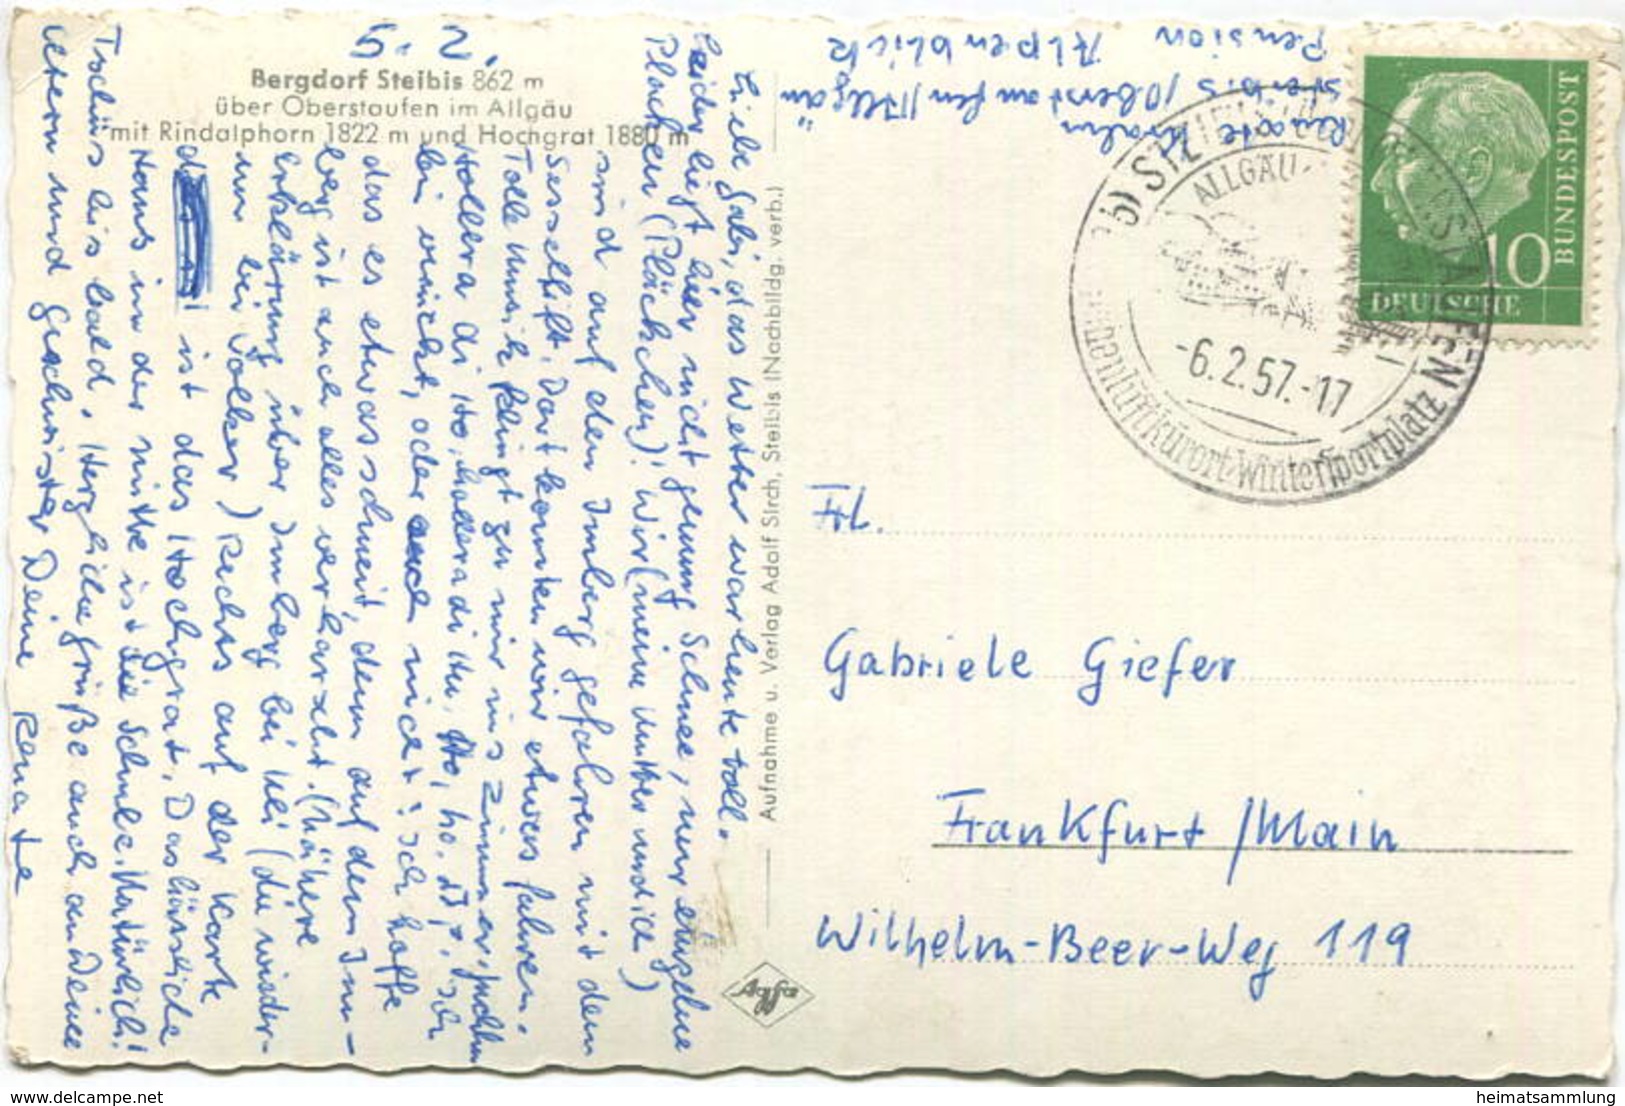 Bergdorf Steibis 862 m
über Oberstaufen im Allgäu
mit Rindalphorn 1822 m und Hochgrat 1880 m
5.2.
Liebe Gabi, das Wetter war heute toll.
Leider liegt hier nicht genung Schnee, nur einzelne
Plöcher (Plöckchen). Wir (meine Mutter und ich)
sind auf den Imberg gefahren mit dem
Sessellift. Dort konnten wir etwas fahren.
Tolle Musik klingt zu mir ins Zimmer, juchhu
Hollera di Ho, hollera di Hu, Ho, ho. Ich
bin verrückt, oder auch nicht: ich hoffe
das es etwas schneit, denn auf dem Im-
berg ist auch alles verharscht. (Nähere
Erklärung über Imberg bei Uli (die wieder-
um bei Volker) Rechts auf der Karte
ist das Hochgrat. Das hässliche
Haus in der mitte ist die Schule. Natürlich!
Tschüss bis bald. Herzliche Grüße auch an Deine
Eltern und Geschwister Deine Renate
Aufnahme u. Verlag Adolf Sirch, Steibis (Nachbildg. verb.)
afka
Renate Krahn
Steibis /Oberstaufen /Allgäu
Pension Alpenblick
OBERSTAUFEN
ALLGÄU
-6.2.57.-17
Höhenluftkurort-Wintersportplatz
DEUTSCHE
BUNDESPOST
10
Frl.
Gabriele Giefer
Frankfurt /Main
Wilhelm-Beer-Weg 119
delcampe.net
heimatsammlung